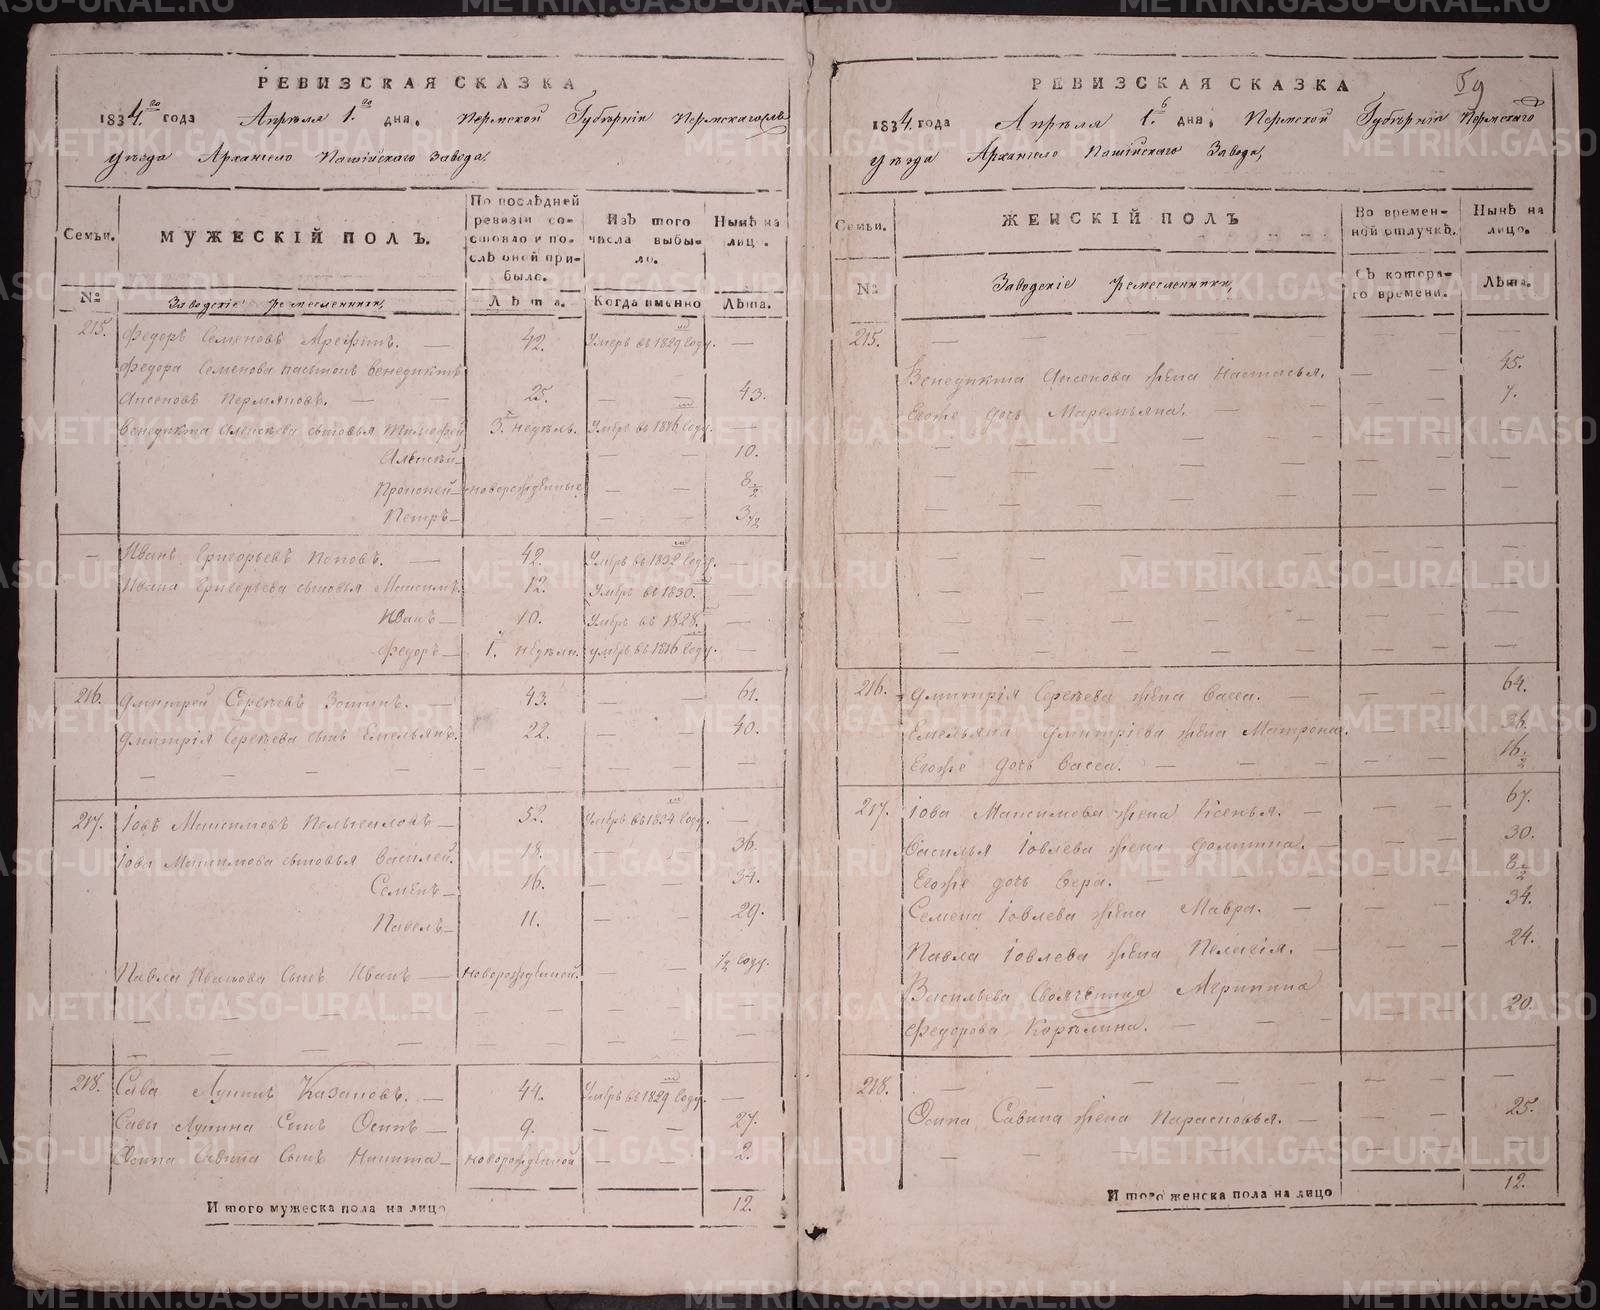 РЕВИЗСКАЯ СКАЗКА
1834.го года Апрѣля 1.го дна, Пермской Губѣрніи Пермскаго
уѣзда Архангело Пашійскаго Завода,
Семьи.
МУЖЕСКІЙ ПОЛЪ.
По послѣдней ревизіи состояло и послѣ оной прибыло.
Изъ того числа выбыло.
Нынѣ на лицо.
№
Заводскіе ремесленники,
Лѣта.
Когда именно
Лѣта.
215. Федоръ Семеновъ 42. Умеръ въ 1829 году. —
Федора Семенова пасынокъ Венедиктъ
25. — — 43.
3. недѣль. —
Алексѣй — 10.
Прокопей — новорожденные — — 8 1/2
Петръ — — — 3 1/2
— Иванъ Григорьевъ Поповъ. — 42. Умеръ въ 1832 году. —
Ивана Григорьева сыновья Максимъ. 12. Умеръ въ 1830. —
Иванъ — 10. Умеръ въ 1828. —
Федоръ — 1. недѣли. умеръ въ 1816 году. —
216. Дмитрей Сергѣевъ Зотинъ. — 43. — — 61.
Дмитрія Сергѣева сынъ Емельянъ. 22. — — 40.
217. Іовъ Максимовъ — 52. Умеръ въ 1834 году. —
Іова Максимова сыновья Василей. 18. — — 36.
Семенъ — 16. — — 34.
Павелъ — 11. — — 29.
Павла сынъ Иванъ — новорожденной. — — 1/2 году.
218. Сава Лукинъ Казаковъ. — 44. Умеръ въ 1829 году. —
Савы Лукина Сынъ Осипъ — 9. — — 27.
Осипа Савина Сынъ Никита — новорожденной — — 2.
Итого мужеска пола на лицо 12.
59
РЕВИЗСКАЯ СКАЗКА
1834. года Апрѣля 1. дна, Пермской Губѣрніи Пермскаго
уѣзда Архангело Пашійскаго Завода,
Семьи.
ЖЕНСКІЙ ПОЛЪ
Во временной отлучкѣ.
Нынѣ на лицо.
№
Заводскіе ремесленники,
Съ котораго времени.
Лѣта.
215.
Венедикта Аксенова жена Настасья. — — 45.
Егоже дочь Маремьяна. — — 7.
216. Дмитрія Сергѣева жена Васса. — — — 64.
Емельяна Дмитріева жена Матрона. — — 36.
Егоже дочь Васса. — — — 16 1/2
217. Іова Максимова жена Ксенья. — — — 67.
Василья Іовлева жена Домнина. — — — 30.
Егоже дочь Вера. — — — 8 1/2
Семена Іовлева жена Мавра. — — — 34.
Павла Іовлева жена Пелагія. — — — 24.
Васильева Своячѣница Агрипина
Федорова Корѣлина. — — 20.
218.
Осипа Савина жена Парасковья. — — — 25.
Итого женска пола на лицо 12.
METRIKI.GASO-URAL.RU